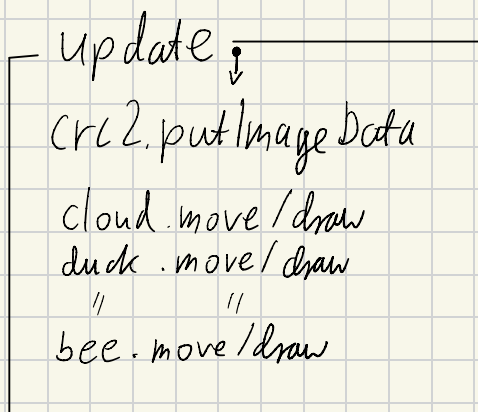 update
crc2.putImageData
cloud.move/draw
duck.move/draw
" "
bee.move/draw